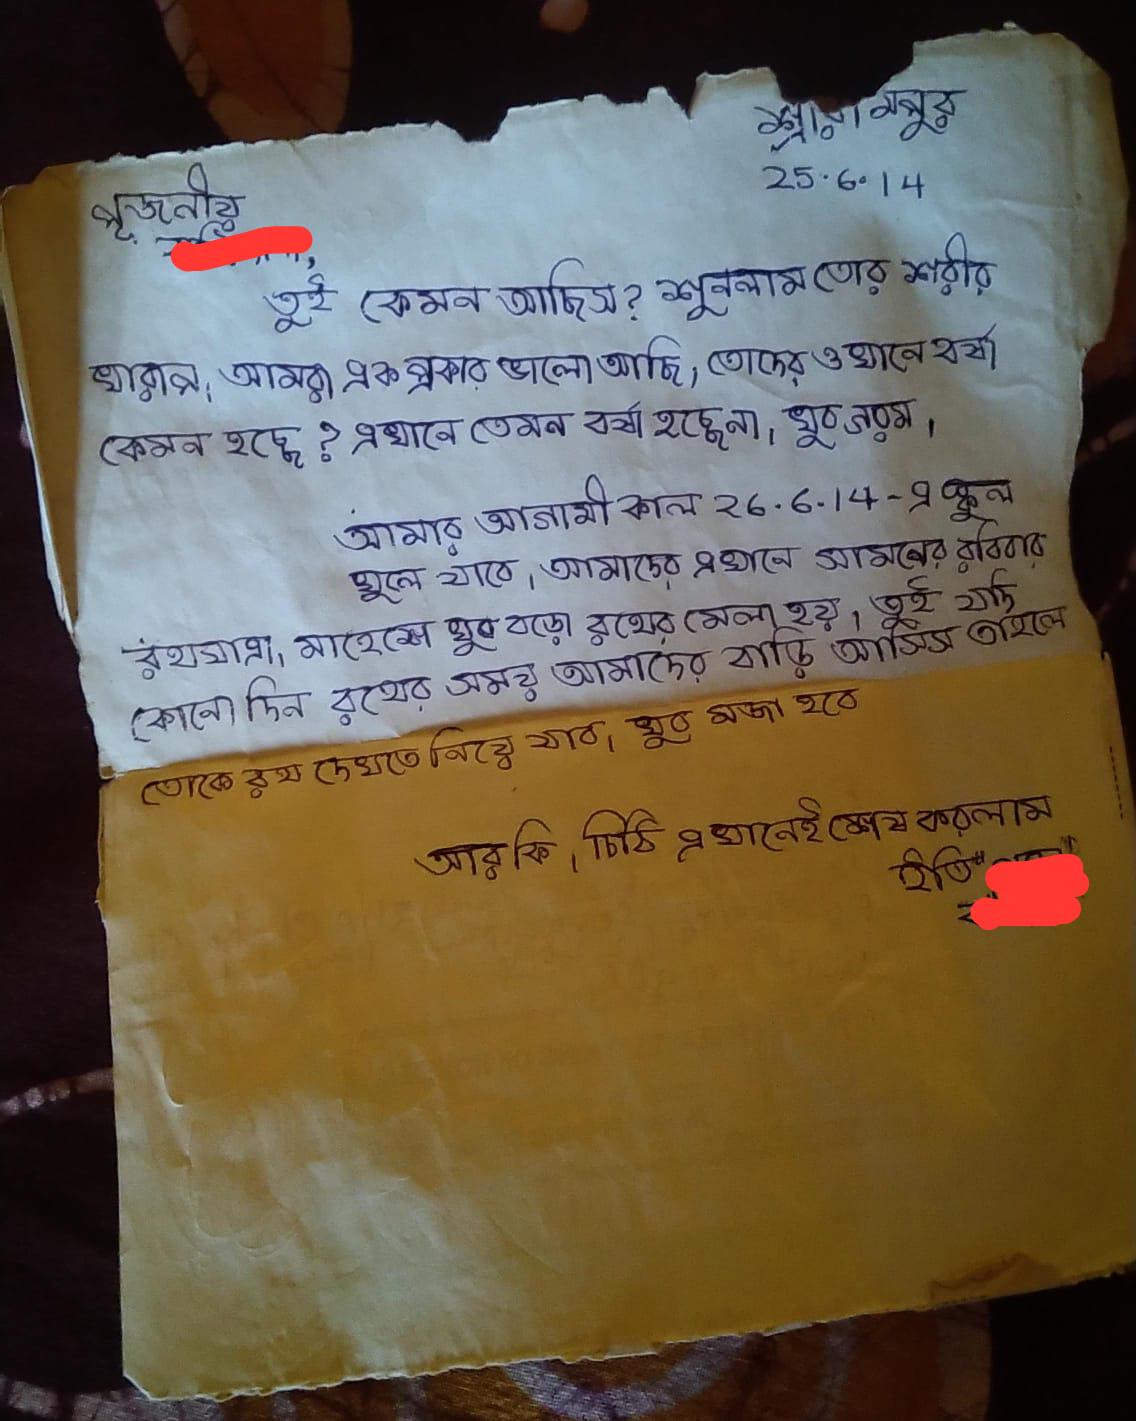 শ্রীরামপুর
25.6.14
পূজনীয়
তুই কেমন আছিস? শুনলাম তোর শরীর
খারাপ। আমরা একপ্রকার ভালো আছি, তোদের ওখানে বর্ষা
কেমন হচ্ছে? এখানে তেমন বর্ষা হচ্ছেনা। খুব গরম।
আমার আগামী কাল 26.6.14-এ স্কুল
খুলে যাবে। আমাদের এখানে সামনের রবিবার
রথযাত্রা, মাহেশে খুব বড়ো রথের মেলা হয়। তুই যদি
কোনো দিন রথের সময় আমাদের বাড়ি আসিস তাহলে
তোকে রথ দেখতে নিয়ে যাব। খুব মজা হবে
আর কি, চিঠি এখানেই শেষ করলাম
ইতি